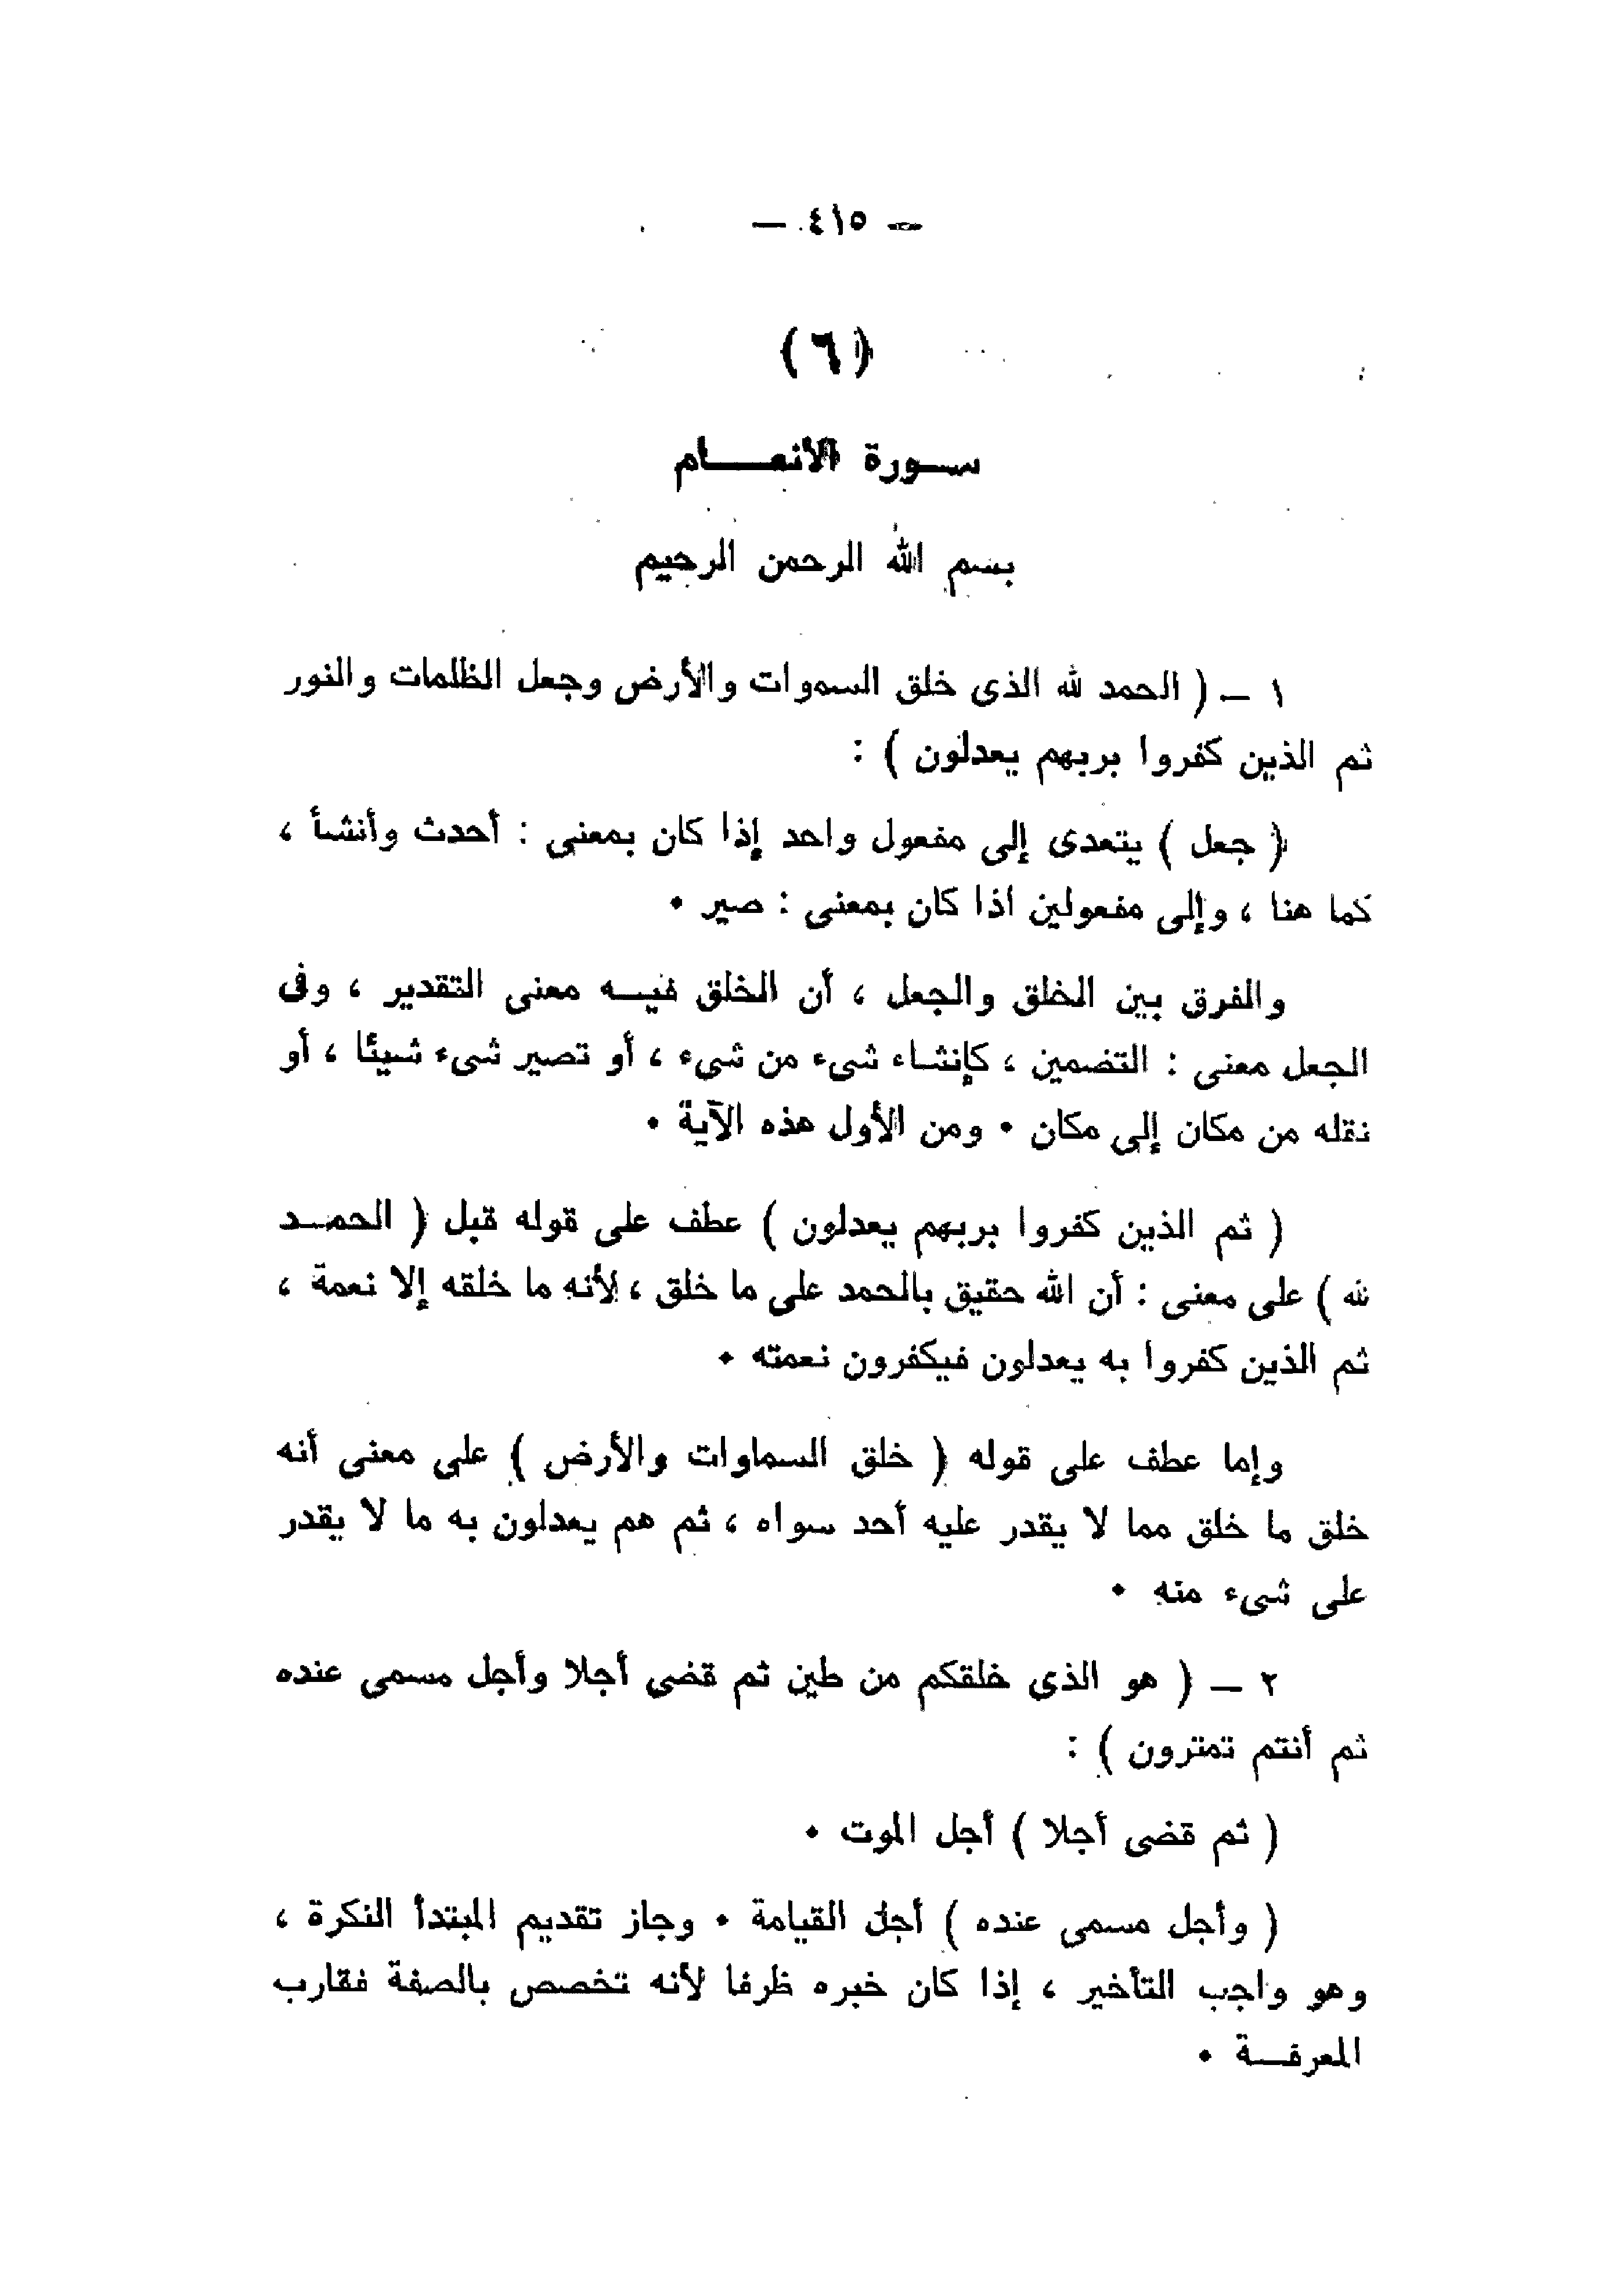 — ٤١٥ —
(٦)
سورة الأنعام
بسم الله الرحمن الرحيم
١ — ( الحمد لله الذى خلق السموات والأرض وجعل الظلمات والنور
ثم الذين كفروا بربهم يعدلون ) :
( جعل ) يتعدى إلى مفعول واحد إذا كان بمعنى : أحدث وأنشأ ،
كما هنا ، وإلى مفعولين اذا كان بمعنى : صير .
والفرق بين الخلق والجعل ، أن الخلق فيه معنى التقدير ، وفى
الجعل معنى : التضمين ، كإنشاء شىء من شىء ، أو تصير شىء شيئا ، أو
نقله من مكان إلى مكان . ومن الأول هذه الآية .
( ثم الذين كفروا بربهم يعدلون ) عطف على قوله قبل ( الحمد
لله ) على معنى : أن الله حقيق بالحمد على ما خلق ، لأنه ما خلقه إلا نعمة ،
ثم الذين كفروا به يعدلون فيكفرون نعمته .
وإما عطف على قوله ( خلق السماوات والأرض ) على معنى أنه
خلق ما خلق مما لا يقدر عليه أحد سواه ، ثم هم يعدلون به ما لا يقدر
على شىء منه .
٢ — ( هو الذى خلقكم من طين ثم قضى أجلا وأجل مسمى عنده
ثم أنتم تمترون ) :
( ثم قضى أجلا ) أجل الموت .
( وأجل مسمى عنده ) أجل القيامة . وجاز تقديم المبتدأ النكرة ،
وهو واجب التأخير ، إذا كان خبره ظرفا لأنه تخصص بالصفة فقارب
المعرفة .